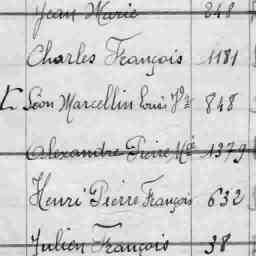 Jean Marie 848
Charles François 1181
Léon Marcellin Louis Jh 848
Alexandre Pierre Mie 1379
Henri Pierre François 632
Julien François 38